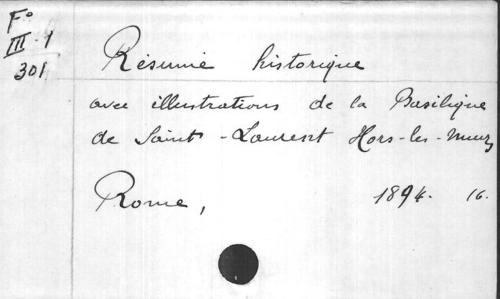 Fº
III-1
301
Résumé historique
avec illustrations de la Basilique
de Saint-Laurent Hors-les-Murs
Rome, 1894. 16.